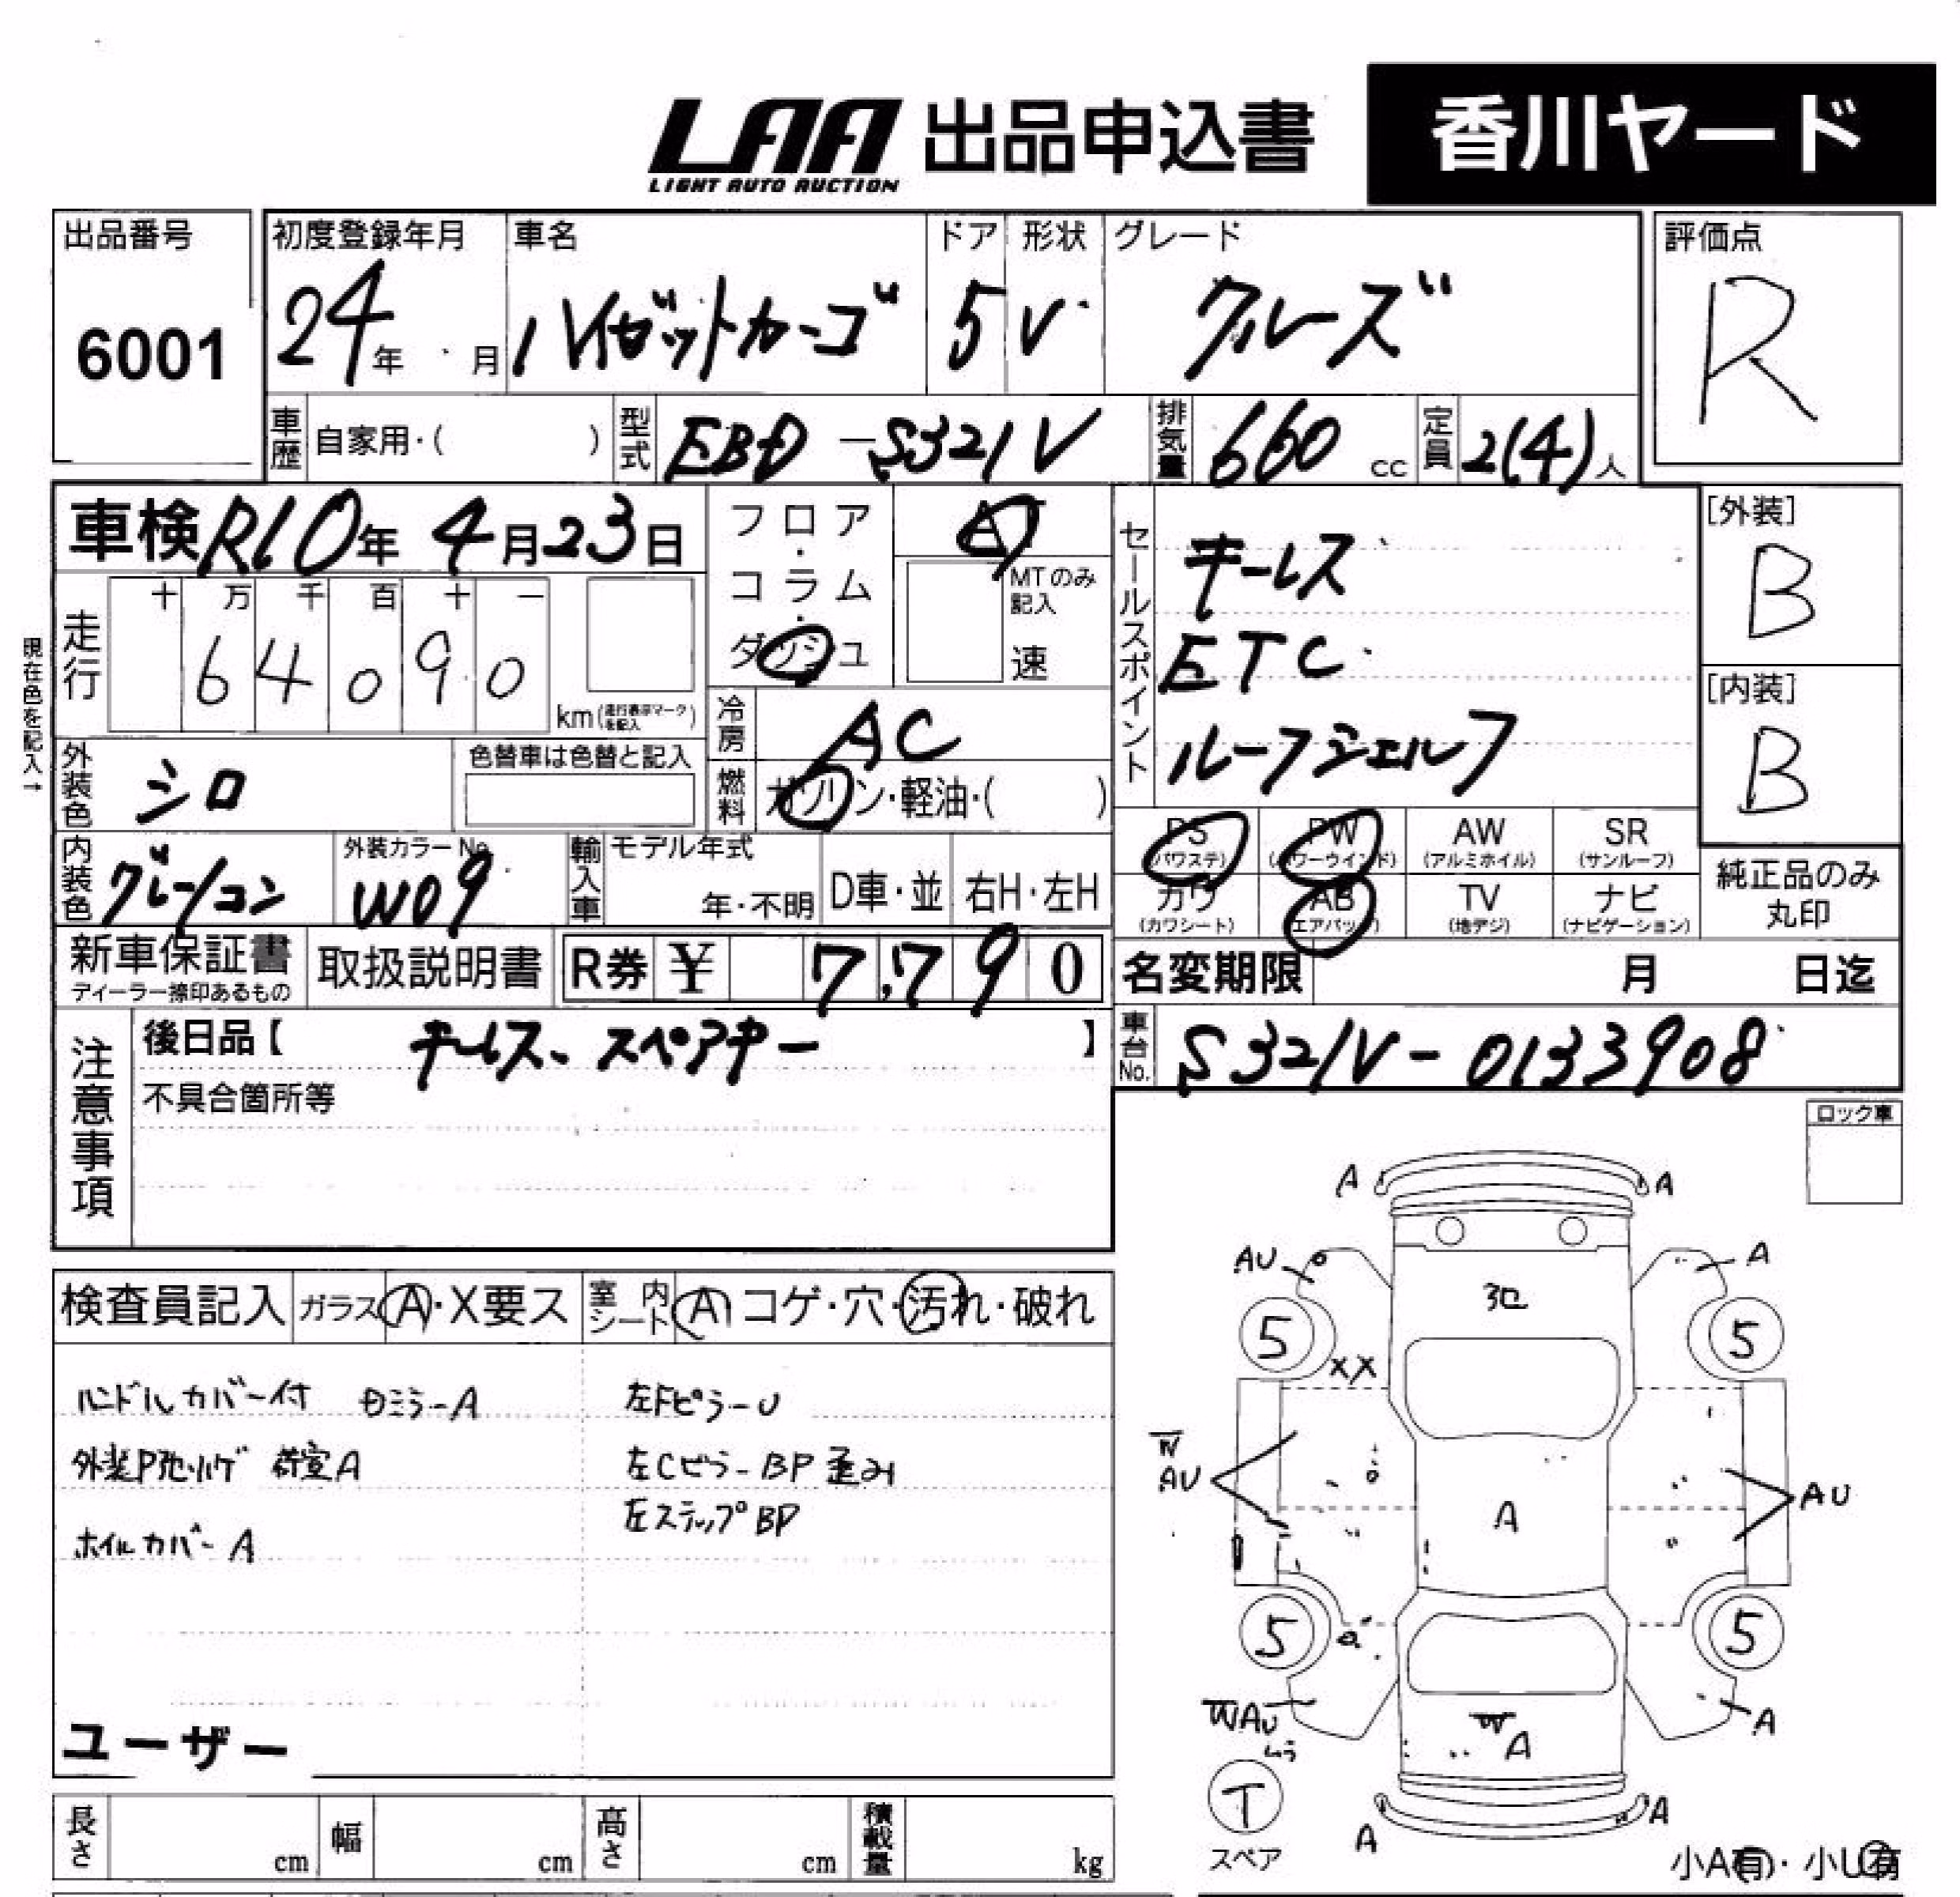 LAA 出品申込書 香川ヤード
LIGHT AUTO AUCTION
出品番号 初度登録年月 車名 ドア 形状 グレード 評価点
6001 24年 月 ハイゼットカーゴ 5 V クルーズ R
車歴 自家用・( ) 型式 EBD-S321V 排気量 660 cc 定員 2(4)人
車検 R10年 4月23日 フロア・コラム・ダッシュ AT
MTのみ記入 速
セールスポイント
キーレス
ETC
ルーフシェルフ
[外装] B
[内装] B
現在色を記入→
走行 十 万 千 百 十 一
6 4 0 9 0
km(走行表示マークを記入)
冷房 AC
外装色 シロ 色替車は色替と記入 燃料 ガソリン・軽油・( )
PS AW SR
(パワステ) (パワーウインド) (アルミホイル) (サンルーフ)
PW
内装色 グレー/コン 外装カラーNo. W09 輸入車 モデル年式 年・不明 D車・並 右H・左H
カワ AB TV ナビ
(カワシート) (エアバッグ) (地デジ) (ナビゲーション)
純正品のみ
丸印
新車保証書 取扱説明書 R券 ¥ 7,790 名変期限 月 日迄
ディーラー捺印あるもの
注意事項 後日品【 キーレス、スペアキー 】 車台No. S321V-0133908
不具合箇所等
ロック車
検査員記入 ガラス A・X要ス 室内シート A コゲ・穴・汚れ・破れ
ハンドルカバー付 ミラーA 左FピラーU
荷室A 左Cピラー BP 歪み
ホイルカバーA 左ステップBP
ユーザー
A A
AU A
5 5
XX
W
AU A AU
5 5
WAU W A A
ムラ
T
スペア
A A
小A有・小U有
長さ cm 幅 cm 高さ cm 積載量 kg